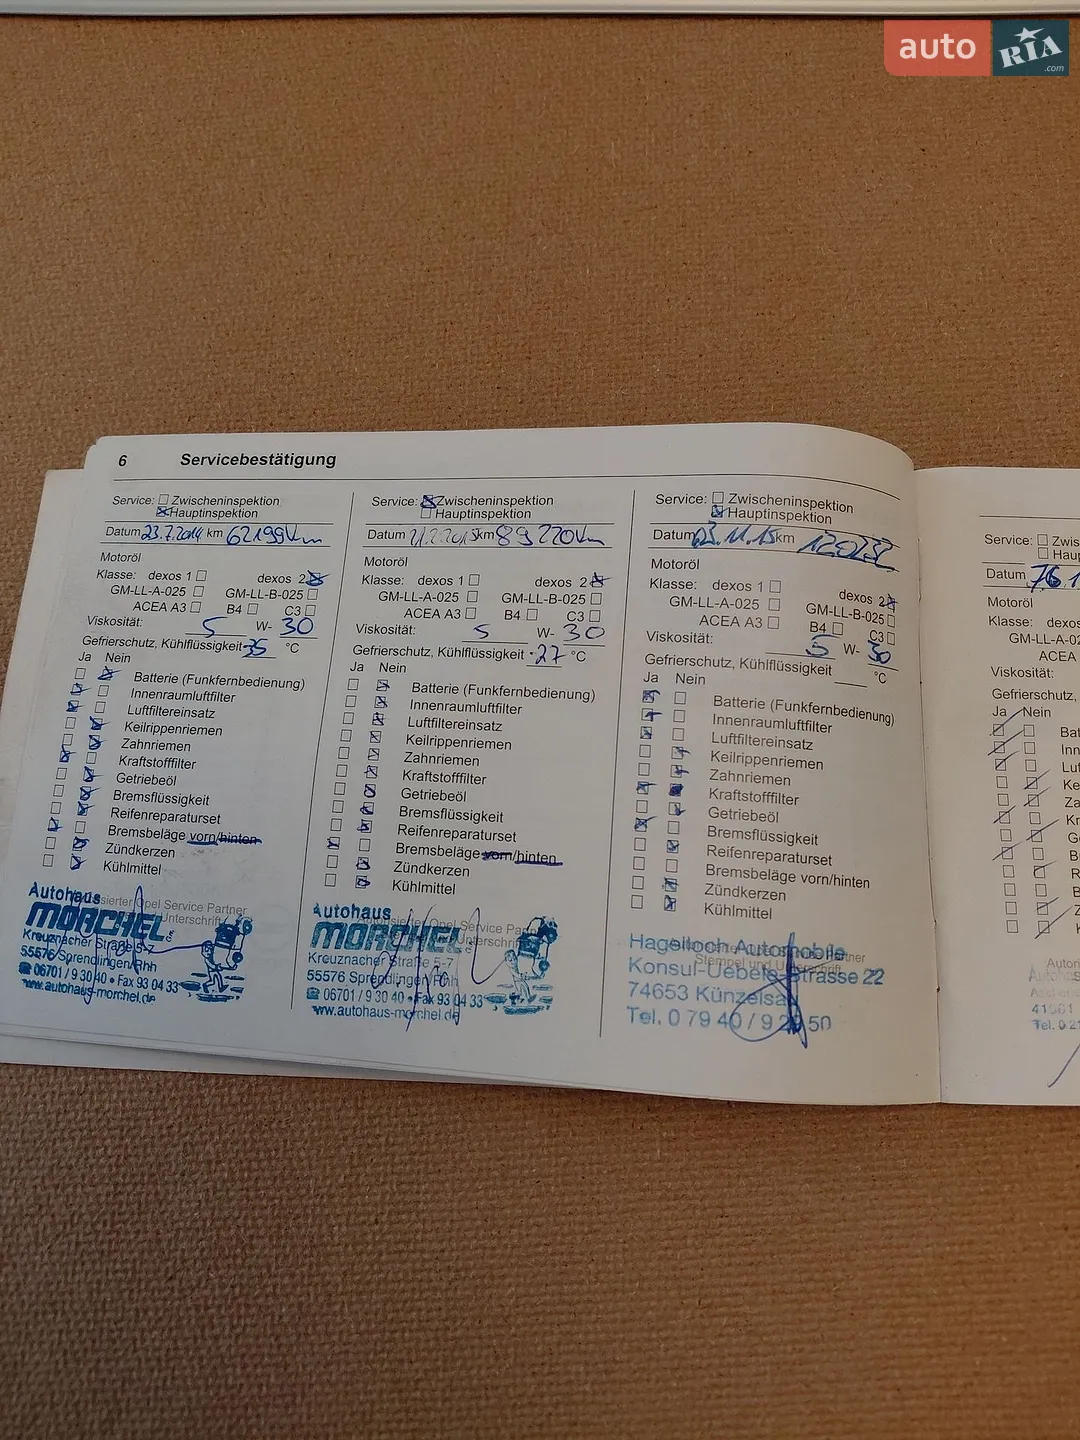 auto RIA .com
6 Servicebestätigung
Service: Zwischeninspektion
Hauptinspektion
Datum 23.7.2014 km 62199 km
Motoröl
Klasse: dexos 1 dexos 2
GM-LL-A-025 GM-LL-B-025
ACEA A3 B4 C3
Viskosität: 5 W- 30
Gefrierschutz, Kühlflüssigkeit -35 °C
Ja Nein
Batterie (Funkfernbedienung)
Innenraumluftfilter
Luftfiltereinsatz
Keilrippenriemen
Zahnriemen
Kraftstofffilter
Getriebeöl
Bremsflüssigkeit
Reifenreparaturset
Bremsbeläge vorn/hinten
Zündkerzen
Kühlmittel
Autohaus
MORCHEL
Kreuznacher Straße 5-7
55576 Sprendlingen/Rhh
06701 / 9 30 40 • Fax 93 04 33
www.autohaus-morchel.de
Service: Zwischeninspektion
Hauptinspektion
Datum km 89220 km
Motoröl
Klasse: dexos 1 dexos 2
GM-LL-A-025 GM-LL-B-025
ACEA A3 B4 C3
Viskosität: 5 W- 30
Gefrierschutz, Kühlflüssigkeit -27 °C
Ja Nein
Batterie (Funkfernbedienung)
Innenraumluftfilter
Luftfiltereinsatz
Keilrippenriemen
Zahnriemen
Kraftstofffilter
Getriebeöl
Bremsflüssigkeit
Reifenreparaturset
Bremsbeläge vorn/hinten
Zündkerzen
Kühlmittel
Autohaus
MORCHEL
Kreuznacher Straße 5-7
55576 Sprendlingen/Rhh
06701 / 9 30 40 • Fax 93 04 33
www.autohaus-morchel.de
Service: Zwischeninspektion
Hauptinspektion
Datum 23.11.15 km
Motoröl
Klasse: dexos 1 dexos 2
GM-LL-A-025 GM-LL-B-025
ACEA A3 B4 C3
Viskosität: 5 W- 30
Gefrierschutz, Kühlflüssigkeit °C
Ja Nein
Batterie (Funkfernbedienung)
Innenraumluftfilter
Luftfiltereinsatz
Keilrippenriemen
Zahnriemen
Kraftstofffilter
Getriebeöl
Bremsflüssigkeit
Reifenreparaturset
Bremsbeläge vorn/hinten
Zündkerzen
Kühlmittel
Hagelloch Automobile
Konsul-Uebele-Strasse 22
74653 Künzelsau
Tel. 0 79 40 / 9 20 50
Service: Zwis
Hau
Datum
Motoröl
Klasse: dexos
GM-LL-A-02
ACEA
Viskosität:
Gefrierschutz,
Ja Nein
Bat
Inn
Luf
Ke
Za
Kr
G
B
R
B
Z
K